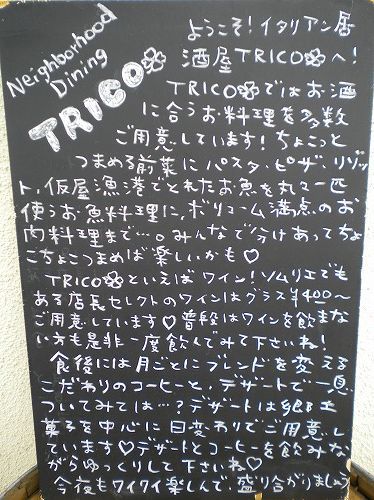 Neighborhood
Dining
TRICO
ようこそ!イタリアン居
酒屋TRICOへ!
TRICOではお酒
に合うお料理を多数
ご用意しています!ちょこっと
つまめる前菜にパスタ・ピザ・リゾッ
ト,仮屋漁港でとれたお魚を丸ごと一匹
使うお魚料理に,ボリューム満点のお
肉料理まで…。みんなで分けあってちょ
こちょこつまめば楽しいかも♡
TRICOといえばワイン!ソムリエでも
ある店長セレクトのワインはグラス¥400〜
ご用意しています♡普段はワインを飲まな
い方も是非一度飲んでみて下さいね!
食後には月ごとにブレンドを変える
こだわりのコーヒーと,デザートで一息
ついてみては…?デザートは郷土
菓子を中心に日変わりでご用意し
ています♡デザートとコーヒーを飲みな
がらゆっくりして下さいね♡
今夜もワイワイ楽しんで,盛り合がりましょう